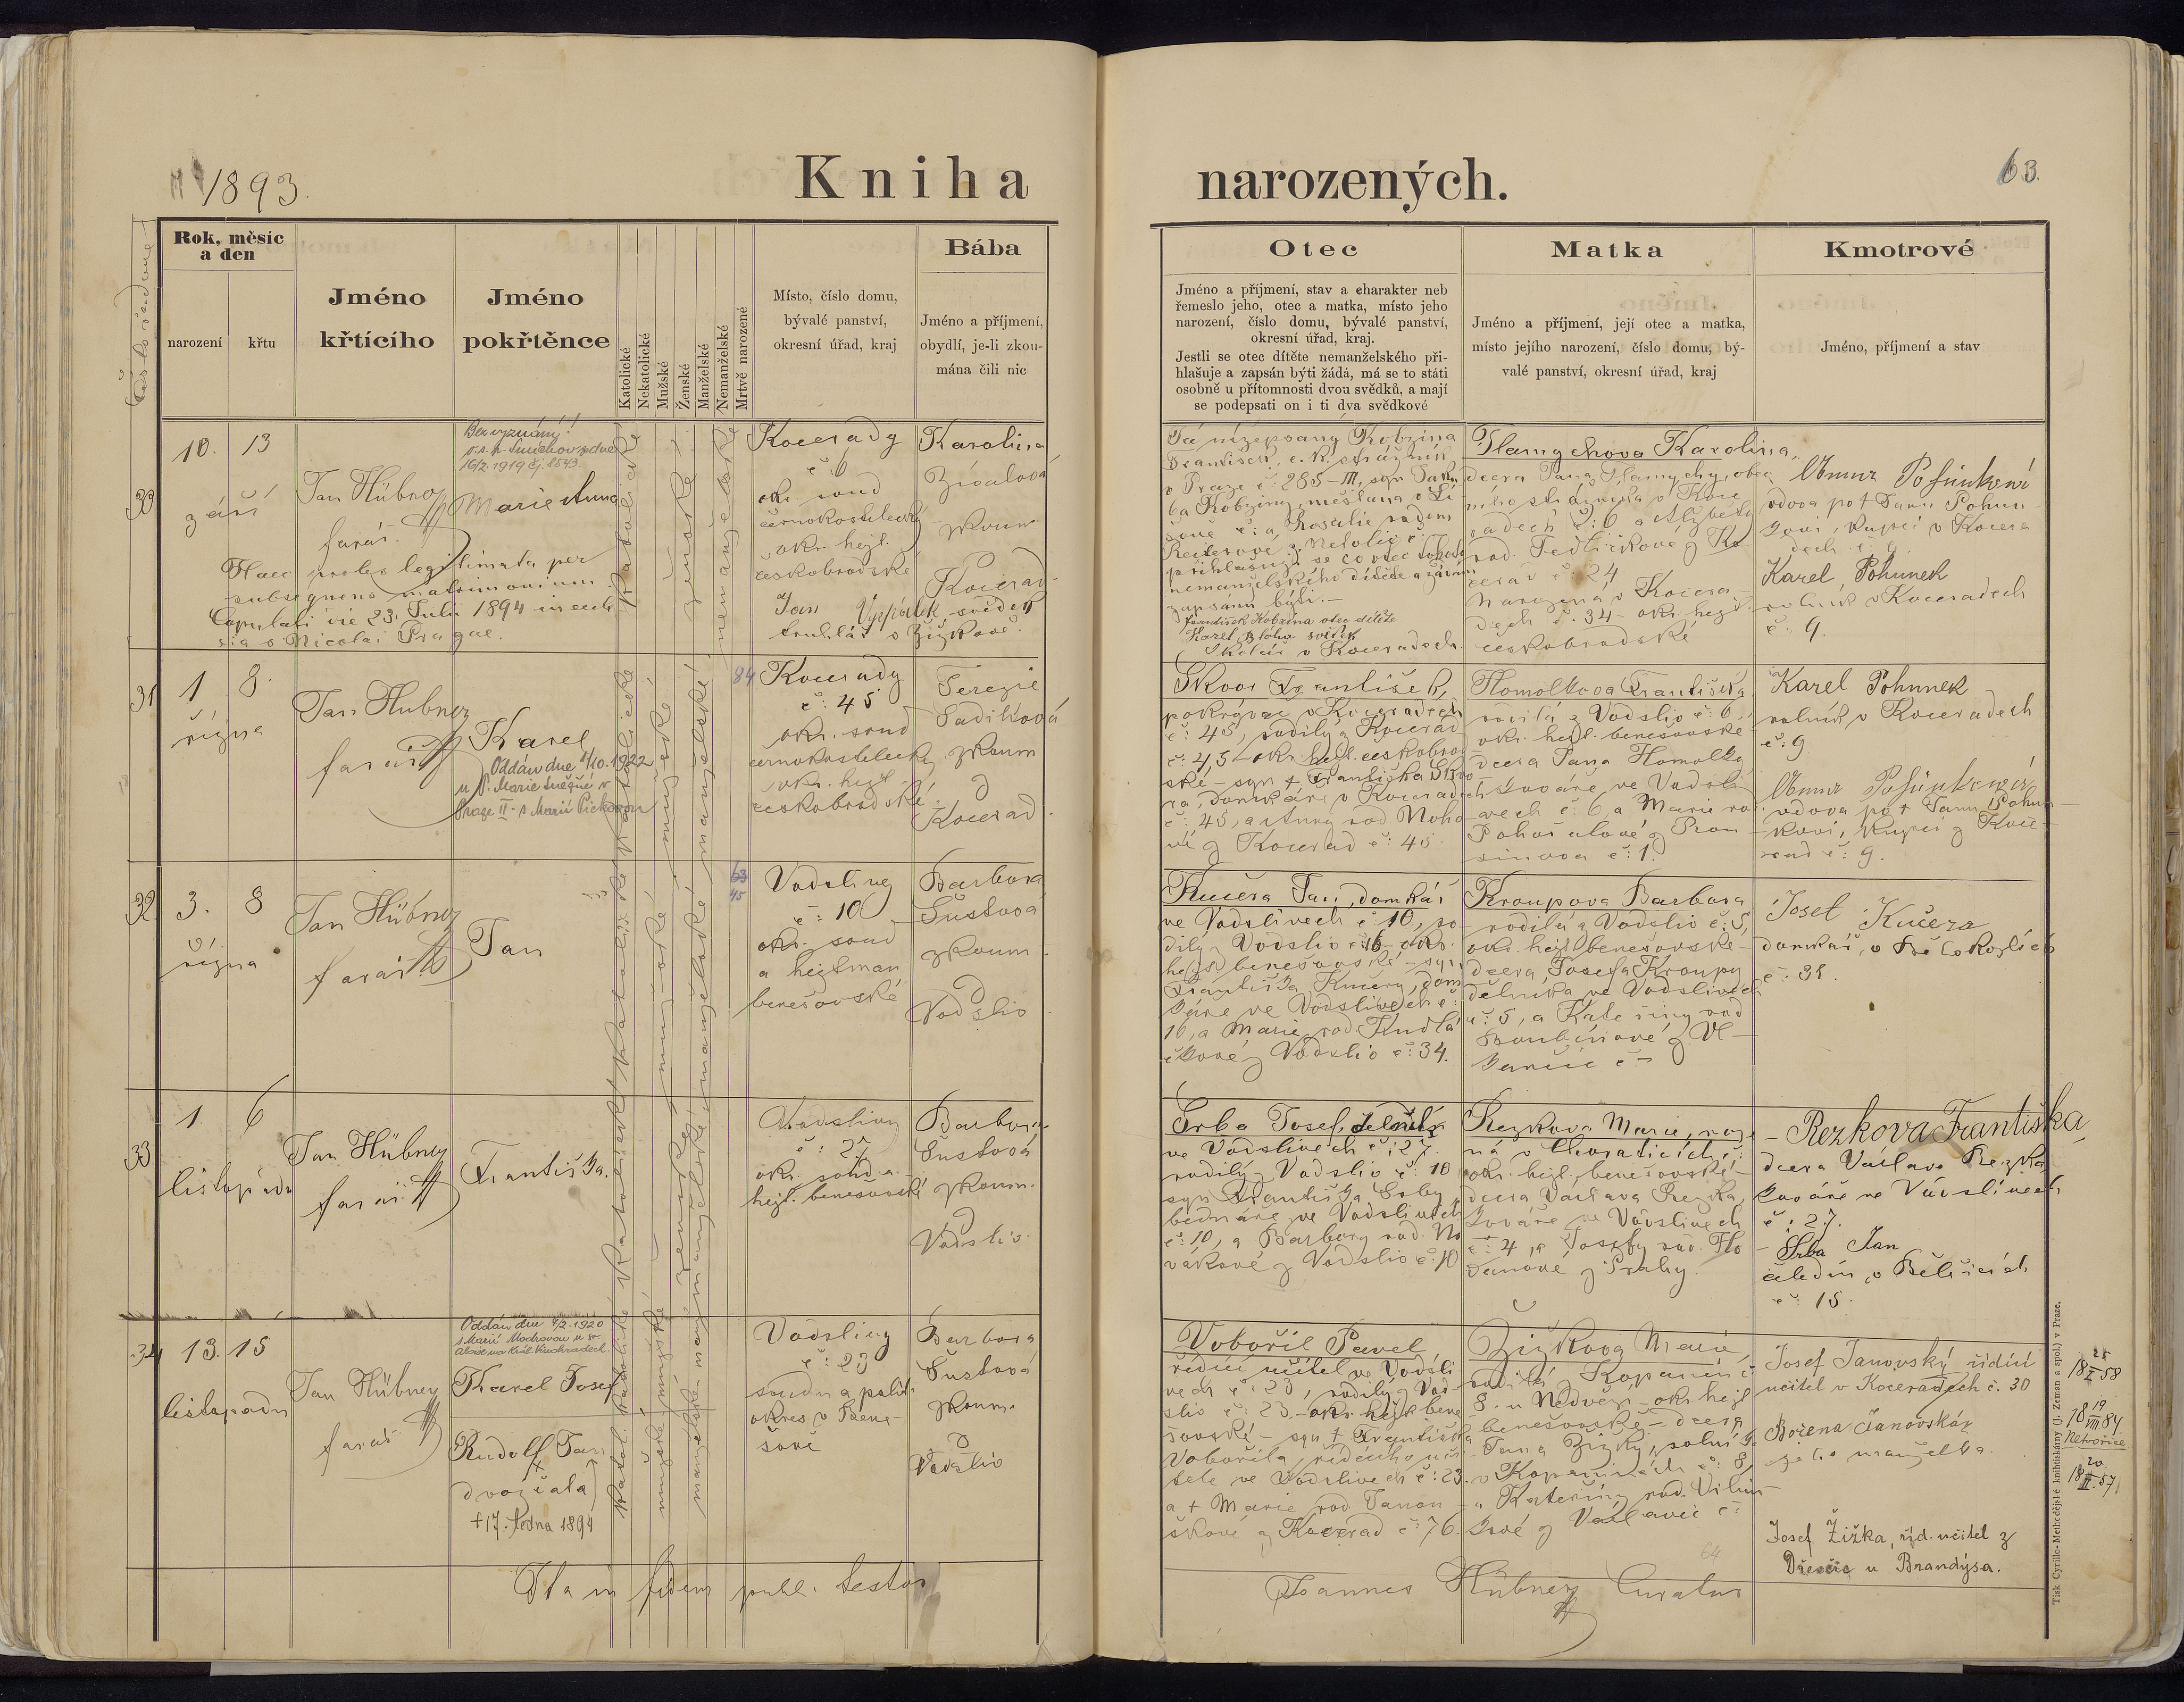 1893.
Kniha narozených.
63.
Číslo řadové
Rok, měsíc
a den
narození
křtu
Jméno
křtícího
Jméno
pokřtěnce
Katolické
Nekatolické
Mužské
Ženské
Manželské
Nemanželské
Mrtvě narozené
Místo, číslo domu,
bývalé panství,
okresní úřad, kraj
Bába
Jméno a příjmení,
obydlí, je-li zkou-
mána čili nic
Otec
Jméno a příjmení, stav a charakter neb
řemeslo jeho, otec a matka, místo jeho
narození, číslo domu, bývalé panství,
okresní úřad, kraj.
Jestli se otec dítěte nemanželského při-
hlašuje a zapsán býti žádá, má se to státi
osobně u přítomnosti dvou svědků, a mají
se podepsati on i ti dva svědkové
Matka
Jméno a příjmení, její otec a matka,
místo jejího narození, číslo domu, bý-
valé panství, okresní úřad, kraj
Kmotrové
Jméno, příjmení a stav
30
10. 13
září
Jan Hübner
farář
Bez vyznání!
16/2. 1919 čj. 8543.
Marie Anna
Haec proles legitimata per
subsequens matrimonium
Copulati die 23. Julii 1894 in eccle
sia s. Nicolai Pragae.
katolické
ženské
nemanželské
Kocerady
č: 6
okr. soud
černokostelecký
okr. hejt.
českobrodské
Jan Vyzpálek svědek
truhlář v Žižkově.
Karolina
Zioalova
zkoum
Kocerad
Já nížepsaný Kobzina
František, c.k. strážník
v Praze č: 285-III, syn Jaku
ba Kobziny, měšťana v Li
šově č: a Rosalie rodem
Reiterové z Netolic č:
přihlašuji se co otec tohoto
nemanželského dítěte a žádám
zapsánu býti. —
František Kobzina otec dítěte
Karel Bloha svědek
v Koceradech.
Hamychova Karolina,
dcera Jana Hamychy, obec
ního strážníka v Koce
radech č: 6 a Alžběty
rod. Jedličkové z Ko
cerad č: 24
Narozená v Kocera-
dech č: 34 - okr. hejt.
českobrodské
Anna Pohunková
vdova po † Janu Pohun
kovi, kupci v Kocera
dech č: 9.
Karel Pohunek
rolník v Koceradech
č: 9.
31
1 8.
října
Jan Hübner
farář
Karel
Oddán dne 4/10. 1922
u P. Marie Sněžné v
Praze II - s Marií
katolické
mužské
manželské
84
Kocerady
č: 45
okr. soud
černokostelecký
okr. hejt.
českobrodské.
Terezie
Sadilková
zkoum
z
Kocerad.
Skoor František,
pokrývač v Koceradech
č: 45, rodilý z Kocerad
č: 45 - okr. hejt. českobrod-
ské - syn † Františka Skoo
ra, domkáře v Koceradech
č: 45, a Anny rod. Noho
vé z Kocerad č: 45.
Homolkova Františka,
rodilá z Vodslio č: 6,
okr. hejt. benešovské -
dcera Jana Homolky
kováře ve Vodsli
vech č: 6, a Marie ro
č: 1.
Karel Pohunek
rolník v Koceradech
č: 9
Anna Pohunková
vdova po † Janu Pohun
kovi, kupci z Koce-
rad č: 9.
32
3. 8
října
Jan Hübner
farář
Jan
katolické
mužské
manželské
63
45
Vodslivy
č: 10
okr. soud
a hejtman
benešovské
Barbora
Šustová
zkoum.
z
Vodslio
Kučera Jan, domkář
ve Vodslivech č: 10, ro
dilý z Vodslio č: 16 - okr.
hejt. benešovské - syn
Františka Kučery, dom
káře ve Vodslivech č:
10, a Marie rod. Kudlá
čkové z Vodslio č: 34.
Kroupova Barbora
rodilá z Vodslio č: 5,
okr. hejt. benešovské -
dcera Josefa Kroupy
dělníka ve Vodslivech
č: 5, a Kateřiny rod
Josef Kučera
domkář, v
č: 31.
33
1. 6
listopadu
Jan Hübner
farář
Františka.
katolické
ženské
manželské
Vodslivy
č: 27
okr. soud a
hejt. benešovské
Barbora
Šustová
zkoum.
z
Vodslio
Srba Josef, dělník
ve Vodslivech č: 27.
rodilý z Vodslio č: 10
syn Františka Srby
bednáře ve Vodslivech
č: 10, a Barbory rod. No
vákové z Vodslio č: 10
Rezkova Marie, roze
ná v Choraticích č:
okr. hejt. benešovské -
dcera Václava Rezka,
kováře ve Vodslivech
č: 4, a Josefy rod. Ho
z Prahy.
Rezkova Františka
dcera Václava Rezka
kováře ve Vodslivech
č: 27.
Srba Jan
čeledín v Bělčicích
č: 15.
34
13. 15
listopadu
Jan Hübner
farář
Oddán dne 7/2. 1920
s Marií Modrovou u sv.
Aloise na Král. Vinohradech.
Karel Josef
Rudolf Jan
†
dvojčata
† 17. ledna 1894
katol. katolické
mužské mužské
manželské manželské
Vodslivy
č: 23
soudní a polit.
okres v Bene-
šově
Barbora
Šustová
zkoum.
z
Vodslio
Vobořil Pavel
řídící učitel ve Vodsli
vech č: 23, rodilý z Vod
slio č: 23. - okr. hejt. bene
šovské - syn † Františka
Vobořila, řídícího uči
tele ve Vodslivech č: 23.
a † Marie rod. Janou-
škové z Kocerad č: 76.
Žižkova Marie,
rodilá z Kopanin č:
8. u Nedvězí - okr. hejt
benešovské - dcera
Jana Žižky, rolníka
v Kopaninách č: 8,
a Kateřiny rod. Vilím-
kové z Václavic č:
Josef Janovský řídící
učitel v Koceradech č. 30
Božena Janovská
jeho manželka.
Josef Žižka, říd. učitel z
Dřevčic u Brandýsa.
25
18 X 58
19
18 VIII 84
Netvořice
20
18 II 57
Ita in fidem publ. testor
Joannes Hübner Curatus
64
Tisk Cyrillo-Methodějské knihtiskárny (J. Zeman a spol.) v Praze.